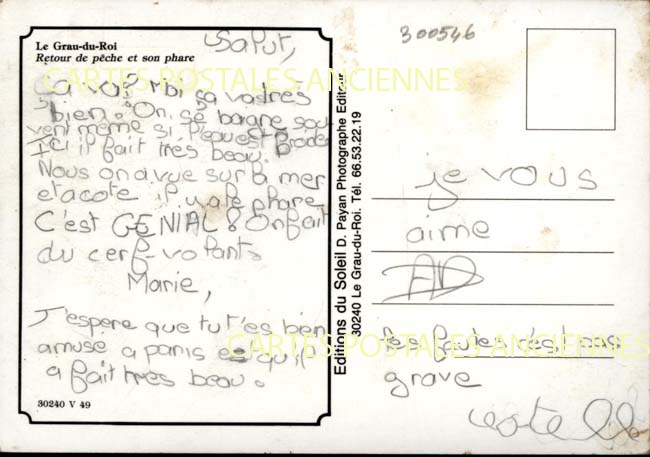 Le Grau-du-Roi
Retour de pêche et son phare
Salut,
Ca va? Moi ça va très
bien. On se baigne sou-
vent même si l'eau est froide
Ici il fait très beau.
Nous on a vue sur la mer
et a coté il y a le phare
C'est GENIAL! On fait
du cerf-volants
Marie,
J'espere que tu t'es bien
amuse a paris et qu'il
a fait tres beau.
30240 V 49
Editions du Soleil D. Payan Photographe Editeur
30240 Le Grau-du-Roi. Tél. 66.53.22.19
300546
je vous
aime
AD
les faute s'és pas
grave
CARTES POSTALES ANCIENNES
CARTES POSTALES ANCIENNES